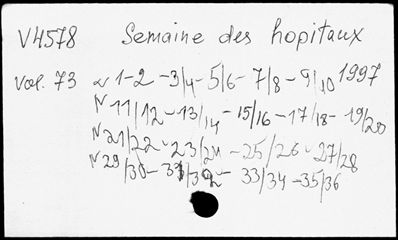 V4578 Semaine des hopitaux
vol. 73 N 1-2-3/4-5/6-7/8-9/10 1997
N 11/12-13/14-15/16-17/18-19/20
N 21/22-23/24-25/26-27/28
N 29/30-31/32-33/34-35/36